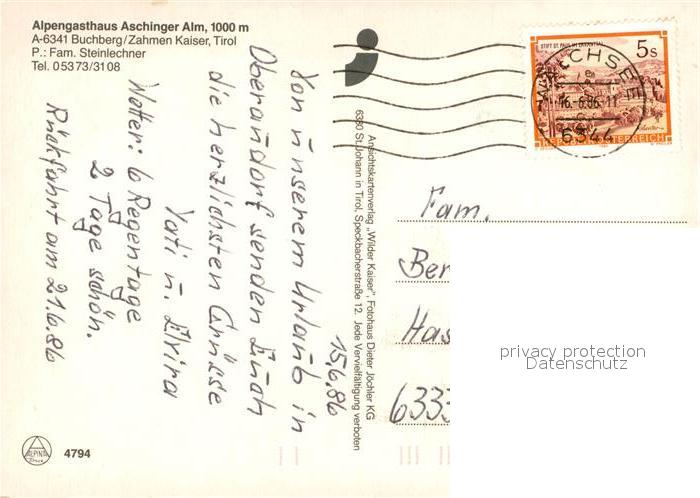 Alpengasthaus Aschinger Alm, 1000 m
A-6341 Buchberg/Zahmen Kaiser, Tirol
P.: Fam. Steinlechner
Tel. 05373/3108
15.6.86
Von unserem Urlaub in
Oberaudorf senden Euch
die herzlichsten Grüsse
Vati u. Elvira
Wetter: 6 Regentage
2 Tage schön.
Rückfahrt am 21.6.86
Ansichtskartenverlag „Wilder Kaiser", Fotohaus Dieter Jöchler KG
6380 St. Johann in Tirol, Speckbacherstraße 12. Jede Vervielfältigung verboten
STIFT ST. PAUL IM LAVANTTAL
5 S
REPUBLIK ÖSTERREICH
WALCHSEE
16.-6.86-11
6344
Fam.
Ber
Has
6333
privacy protection
Datenschutz
ALPINA
4794